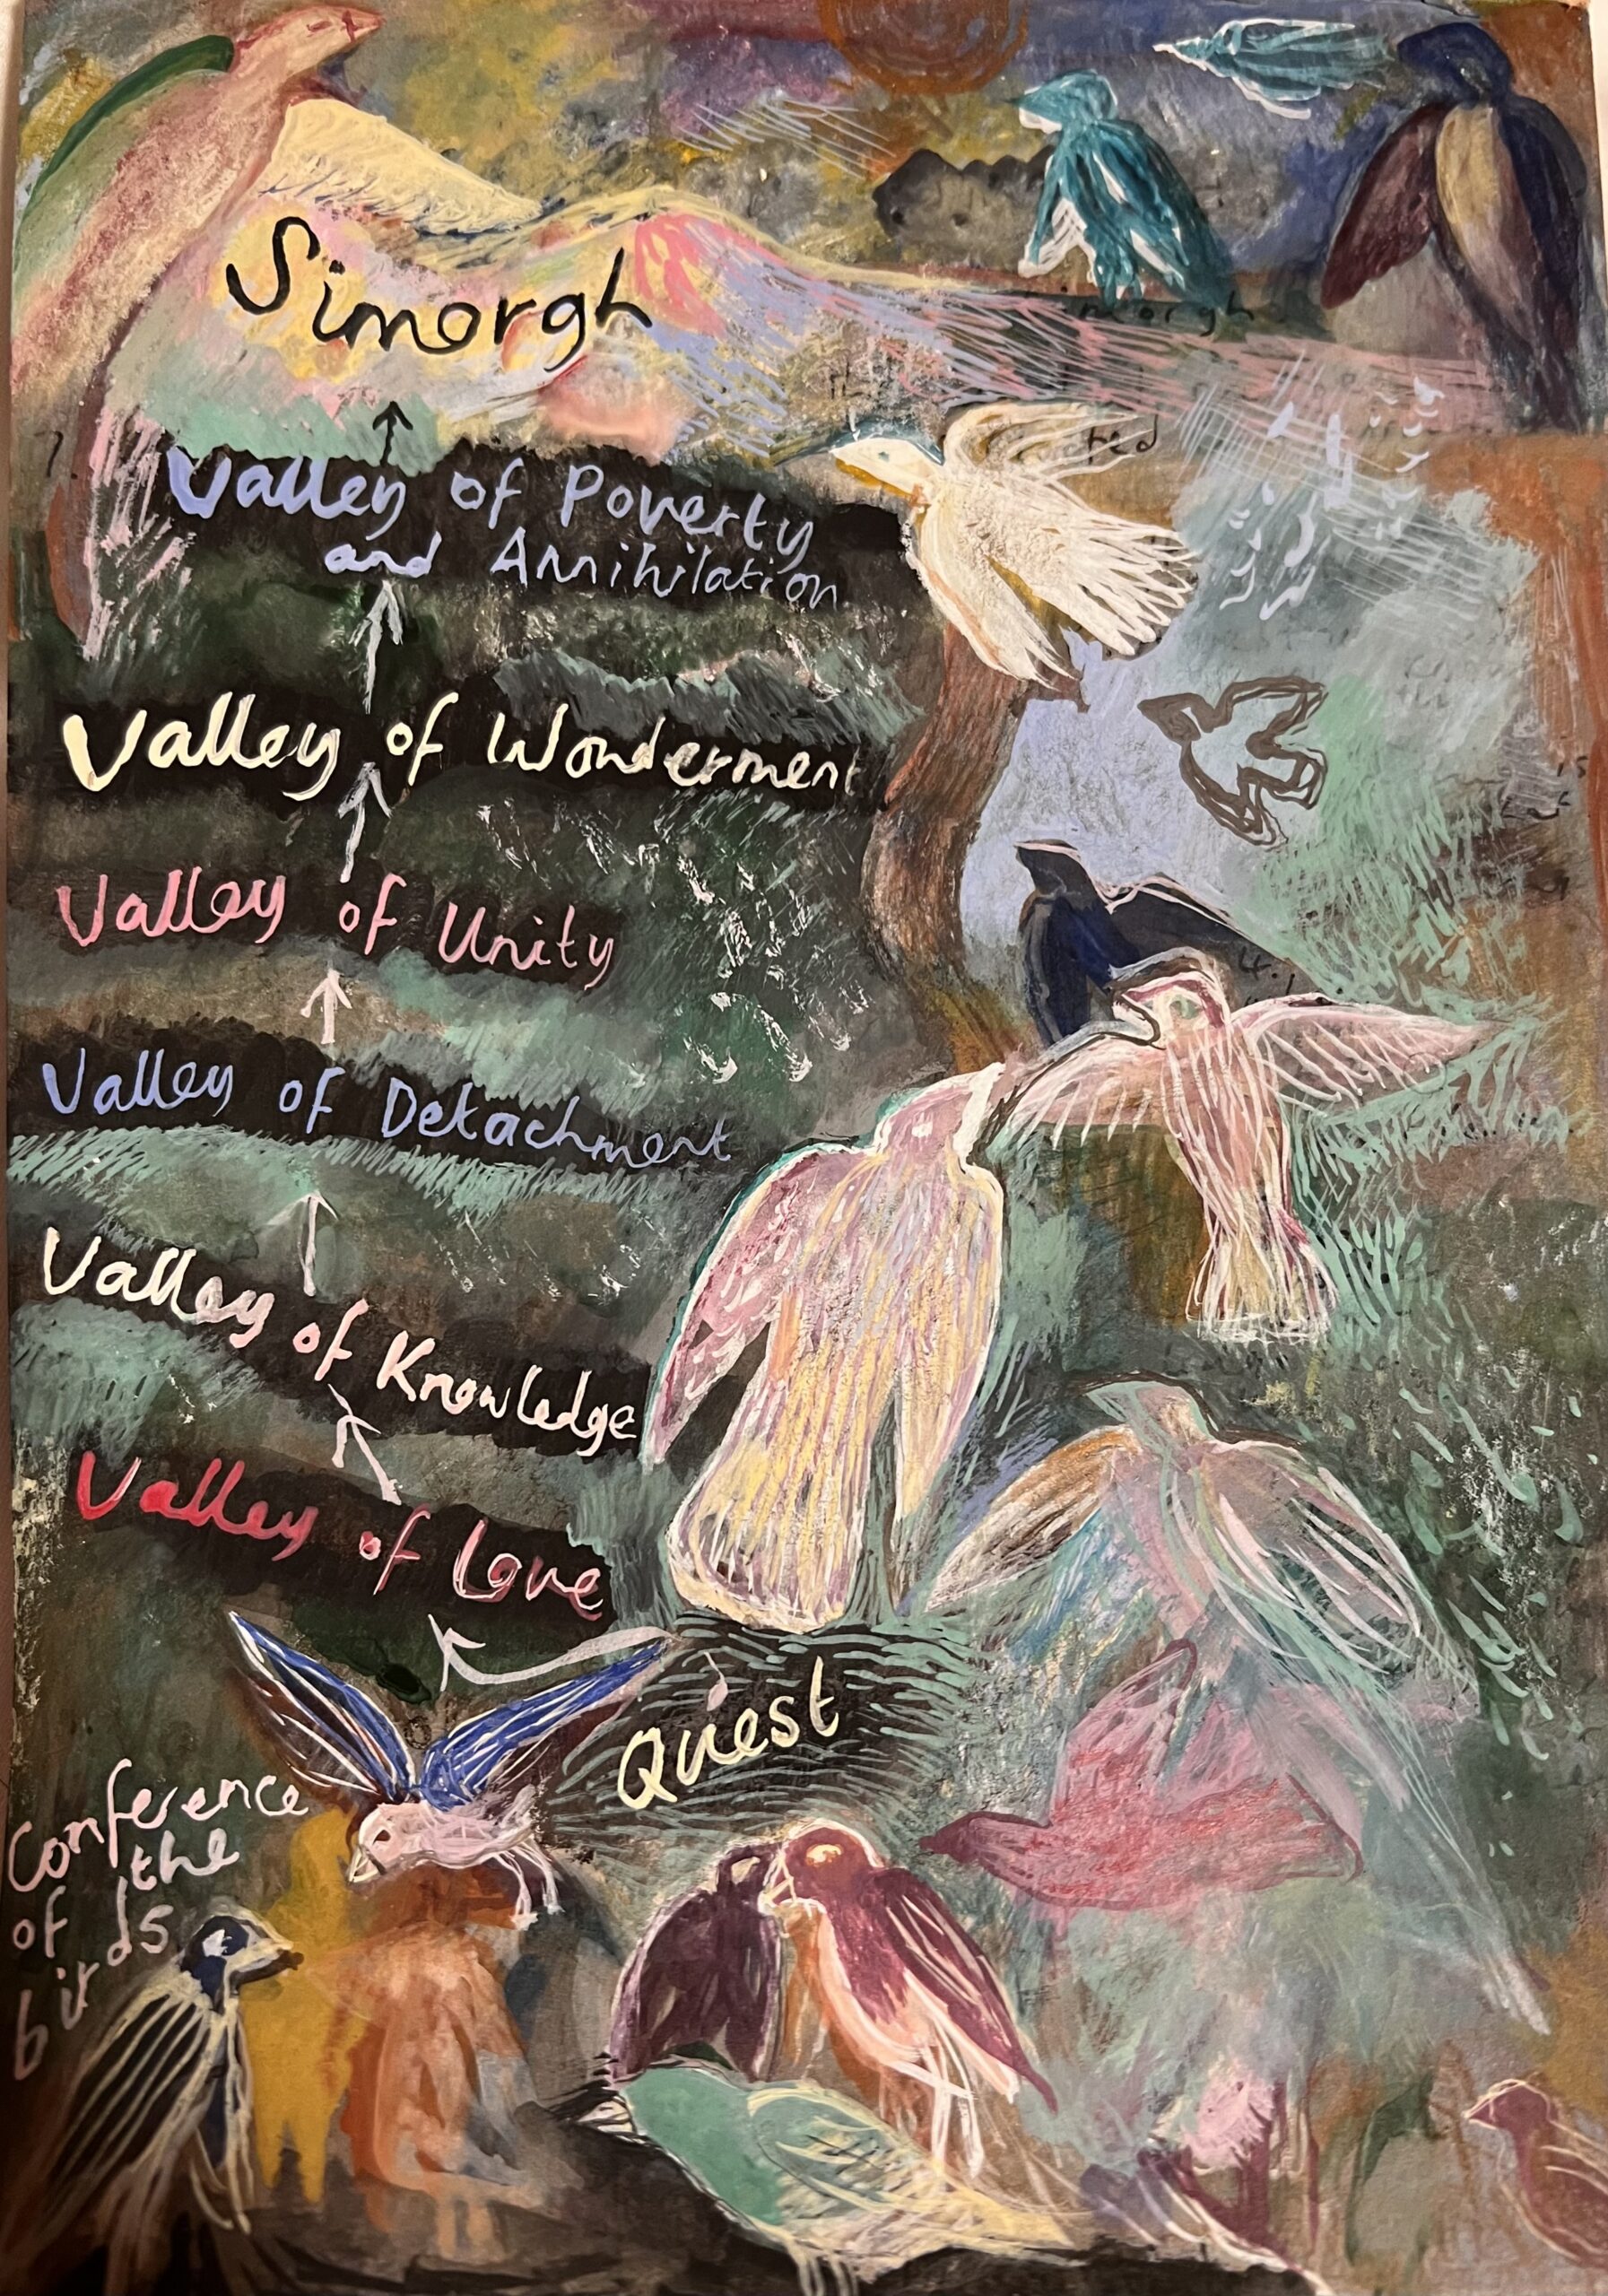 Simorgh
Valley of Poverty
and Annihilation
Valley of Wonderment
Valley of Unity
Valley of Detachment
Valley of Knowledge
Valley of Love
Quest
Conference
the
of
birds